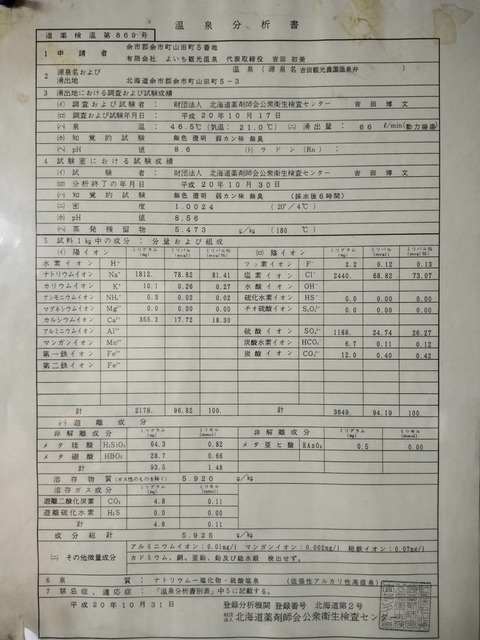 温泉分析書
道薬検温第869号
1 申請者 余市郡余市町山田町5番地
有限会社 よいち観光温泉 代表取締役 吉田 初美
2 源泉名および湧出地 温泉 (源泉名 吉田観光農園温泉井)
北海道余市郡余市町山田町5-3
3 湧出地における調査および試験成績
(イ) 調査および試験者: 財団法人 北海道薬剤師会公衆衛生検査センター 吉田 博文
(ロ) 調査および試験年月日: 平成20年10月17日
(ハ) 泉温: 46.5℃ (気温: 21.0℃) (ニ) 湧出量: 66 ℓ/min (動力揚湯)
(ホ) 知覚的試験: 無色 澄明 弱カン味 無臭
(ヘ) pH値: 8.6 (ト) ラドン (Rn):
4 試験室における試験成績
(イ) 試験者: 財団法人 北海道薬剤師会公衆衛生検査センター 吉田 博文
(ロ) 分析終了の年月日: 平成20年10月30日
(ハ) 知覚的試験: 無色 澄明 弱カン味 無臭 (採水後6時間)
(ニ) 密度: 1.0024 (20°/4℃)
(ホ) pH値: 8.56
(ヘ) 蒸発残留物: 5.473 g/kg (180℃)
5 試料1kg中の成分:分量および組成
(イ) 陽イオン ミリグラム (mg) ミリバル (mval) ミリバル% (mval%) (ロ) 陰イオン ミリグラム (mg) ミリバル (mval) ミリバル% (mval%)
水素イオン H⁺ フッ素イオン F⁻ 2.2 0.12 0.13
ナトリウムイオン Na⁺ 1812. 78.82 81.41 塩素イオン Cl⁻ 2440. 68.82 73.07
カリウムイオン K⁺ 10.1 0.26 0.27 水酸イオン OH⁻
アンモニウムイオン NH₄⁺ 0.3 0.02 0.02 硫化水素イオン HS⁻ 0.0 0.00 0.00
マグネシウムイオン Mg²⁺ 0.0 0.00 0.00 チオ硫酸イオン S₂O₃²⁻ 0.0 0.00 0.00
カルシウムイオン Ca²⁺ 355.2 17.72 18.30
アルミニウムイオン Al³⁺ 硫酸イオン SO₄²⁻ 1188. 24.74 26.27
マンガンイオン Mn²⁺ 炭酸水素イオン HCO₃⁻ 6.7 0.11 0.12
第一鉄イオン Fe²⁺ 炭酸イオン CO₃²⁻ 12.0 0.40 0.42
第二鉄イオン Fe³⁺
計 2178. 96.82 100. 計 3649. 94.19 100.
(ハ) 遊離成分
非解離成分 ミリグラム (mg) ミリモル (mmol) 非解離成分 ミリグラム (mg) ミリモル (mmol)
メタ珪酸 H₂SiO₃ 64.3 0.82 メタ亜ヒ酸 HAsO₂ 0.5 0.00
メタ硼酸 HBO₂ 28.7 0.66
計 93.5 1.48
溶存物質 (ガス性のものを除く) 5.920 g/kg
溶存ガス成分 ミリグラム (mg) ミリモル (mmol)
遊離二酸化炭素 CO₂ 4.8 0.11
遊離硫化水素 H₂S 0.0 0.00
計 4.8 0.11
成分総計 5.925 g/kg
(ニ) その他微量成分 アルミニウムイオン:0.01mg/l マンガンイオン:0.002mg/l 総鉄イオン:0.07mg/l
カドミウム、銅、亜鉛、鉛及び総水銀 検出せず。
6 泉質: ナトリウム-塩化物・硫酸塩泉 (低張性アルカリ性高温泉)
7 禁忌症、適応症: 「温泉分析書別表」中5に記載する。
平成20年10月31日 登録分析機関 登録番号 北海道第2号
財団法人 北海道薬剤師会公衆衛生検査センター